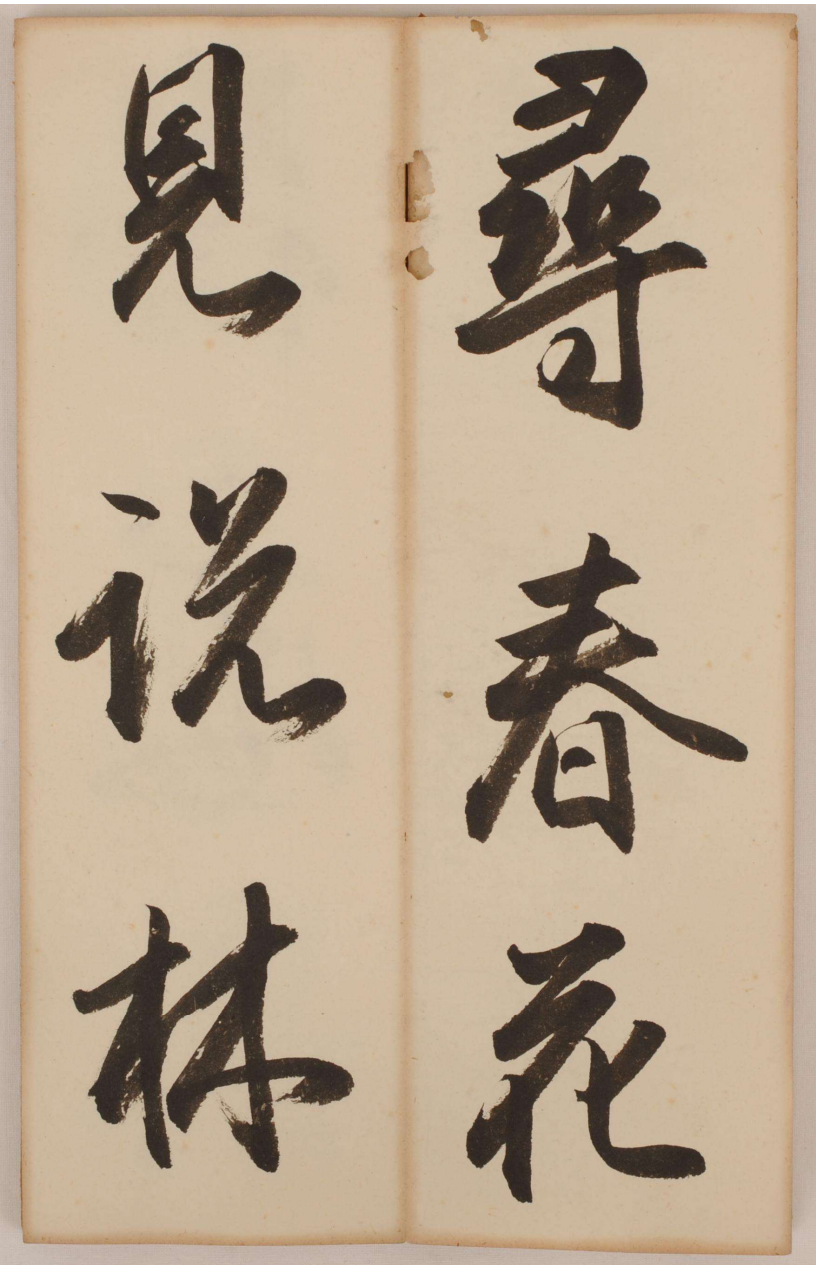 尋春花
見説林